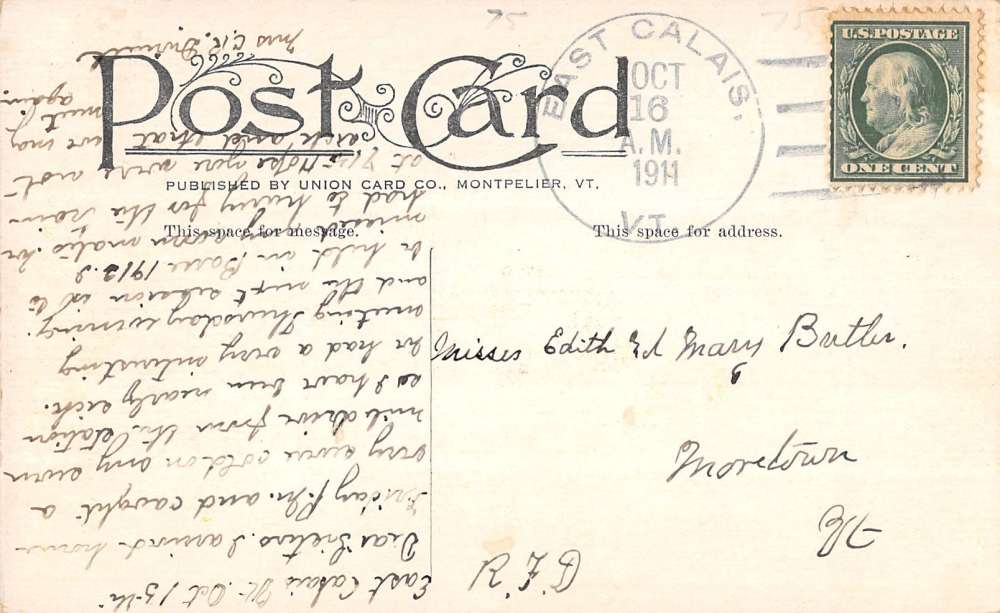 Post Card
PUBLISHED BY UNION CARD CO., MONTPELIER, VT.
This space for message.
This space for address.
EAST CALAIS,
VT.
OCT
16
A.M.
1911
U.S. POSTAGE
ONE CENT
75
75
Misses Edith & Mary Butler.
Moretown
Vt
R.F.D
East Calais Vt. Oct 15-th
Dear Sisters. I arrived home
Friday P.M. and caught a
very severe cold on my seven
mile drive from the station
so I have been nearly sick.
We had a very interesting
meeting Thursday evening.
and the next session is to
be held in Barre 1912. I
missed my acorn
had to hurry for the train
at 7 15 Hope you were not
sick and that
we may
meet
again.
Mrs C.R.